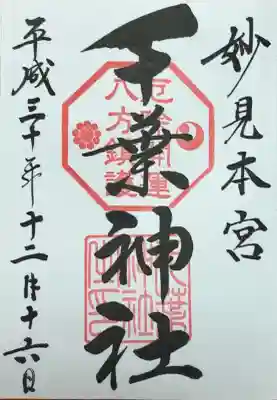 妙見本宮
千葉神社
平成三十年十二月十六日
厄除開運
八方鎮護
千葉
神社
之印